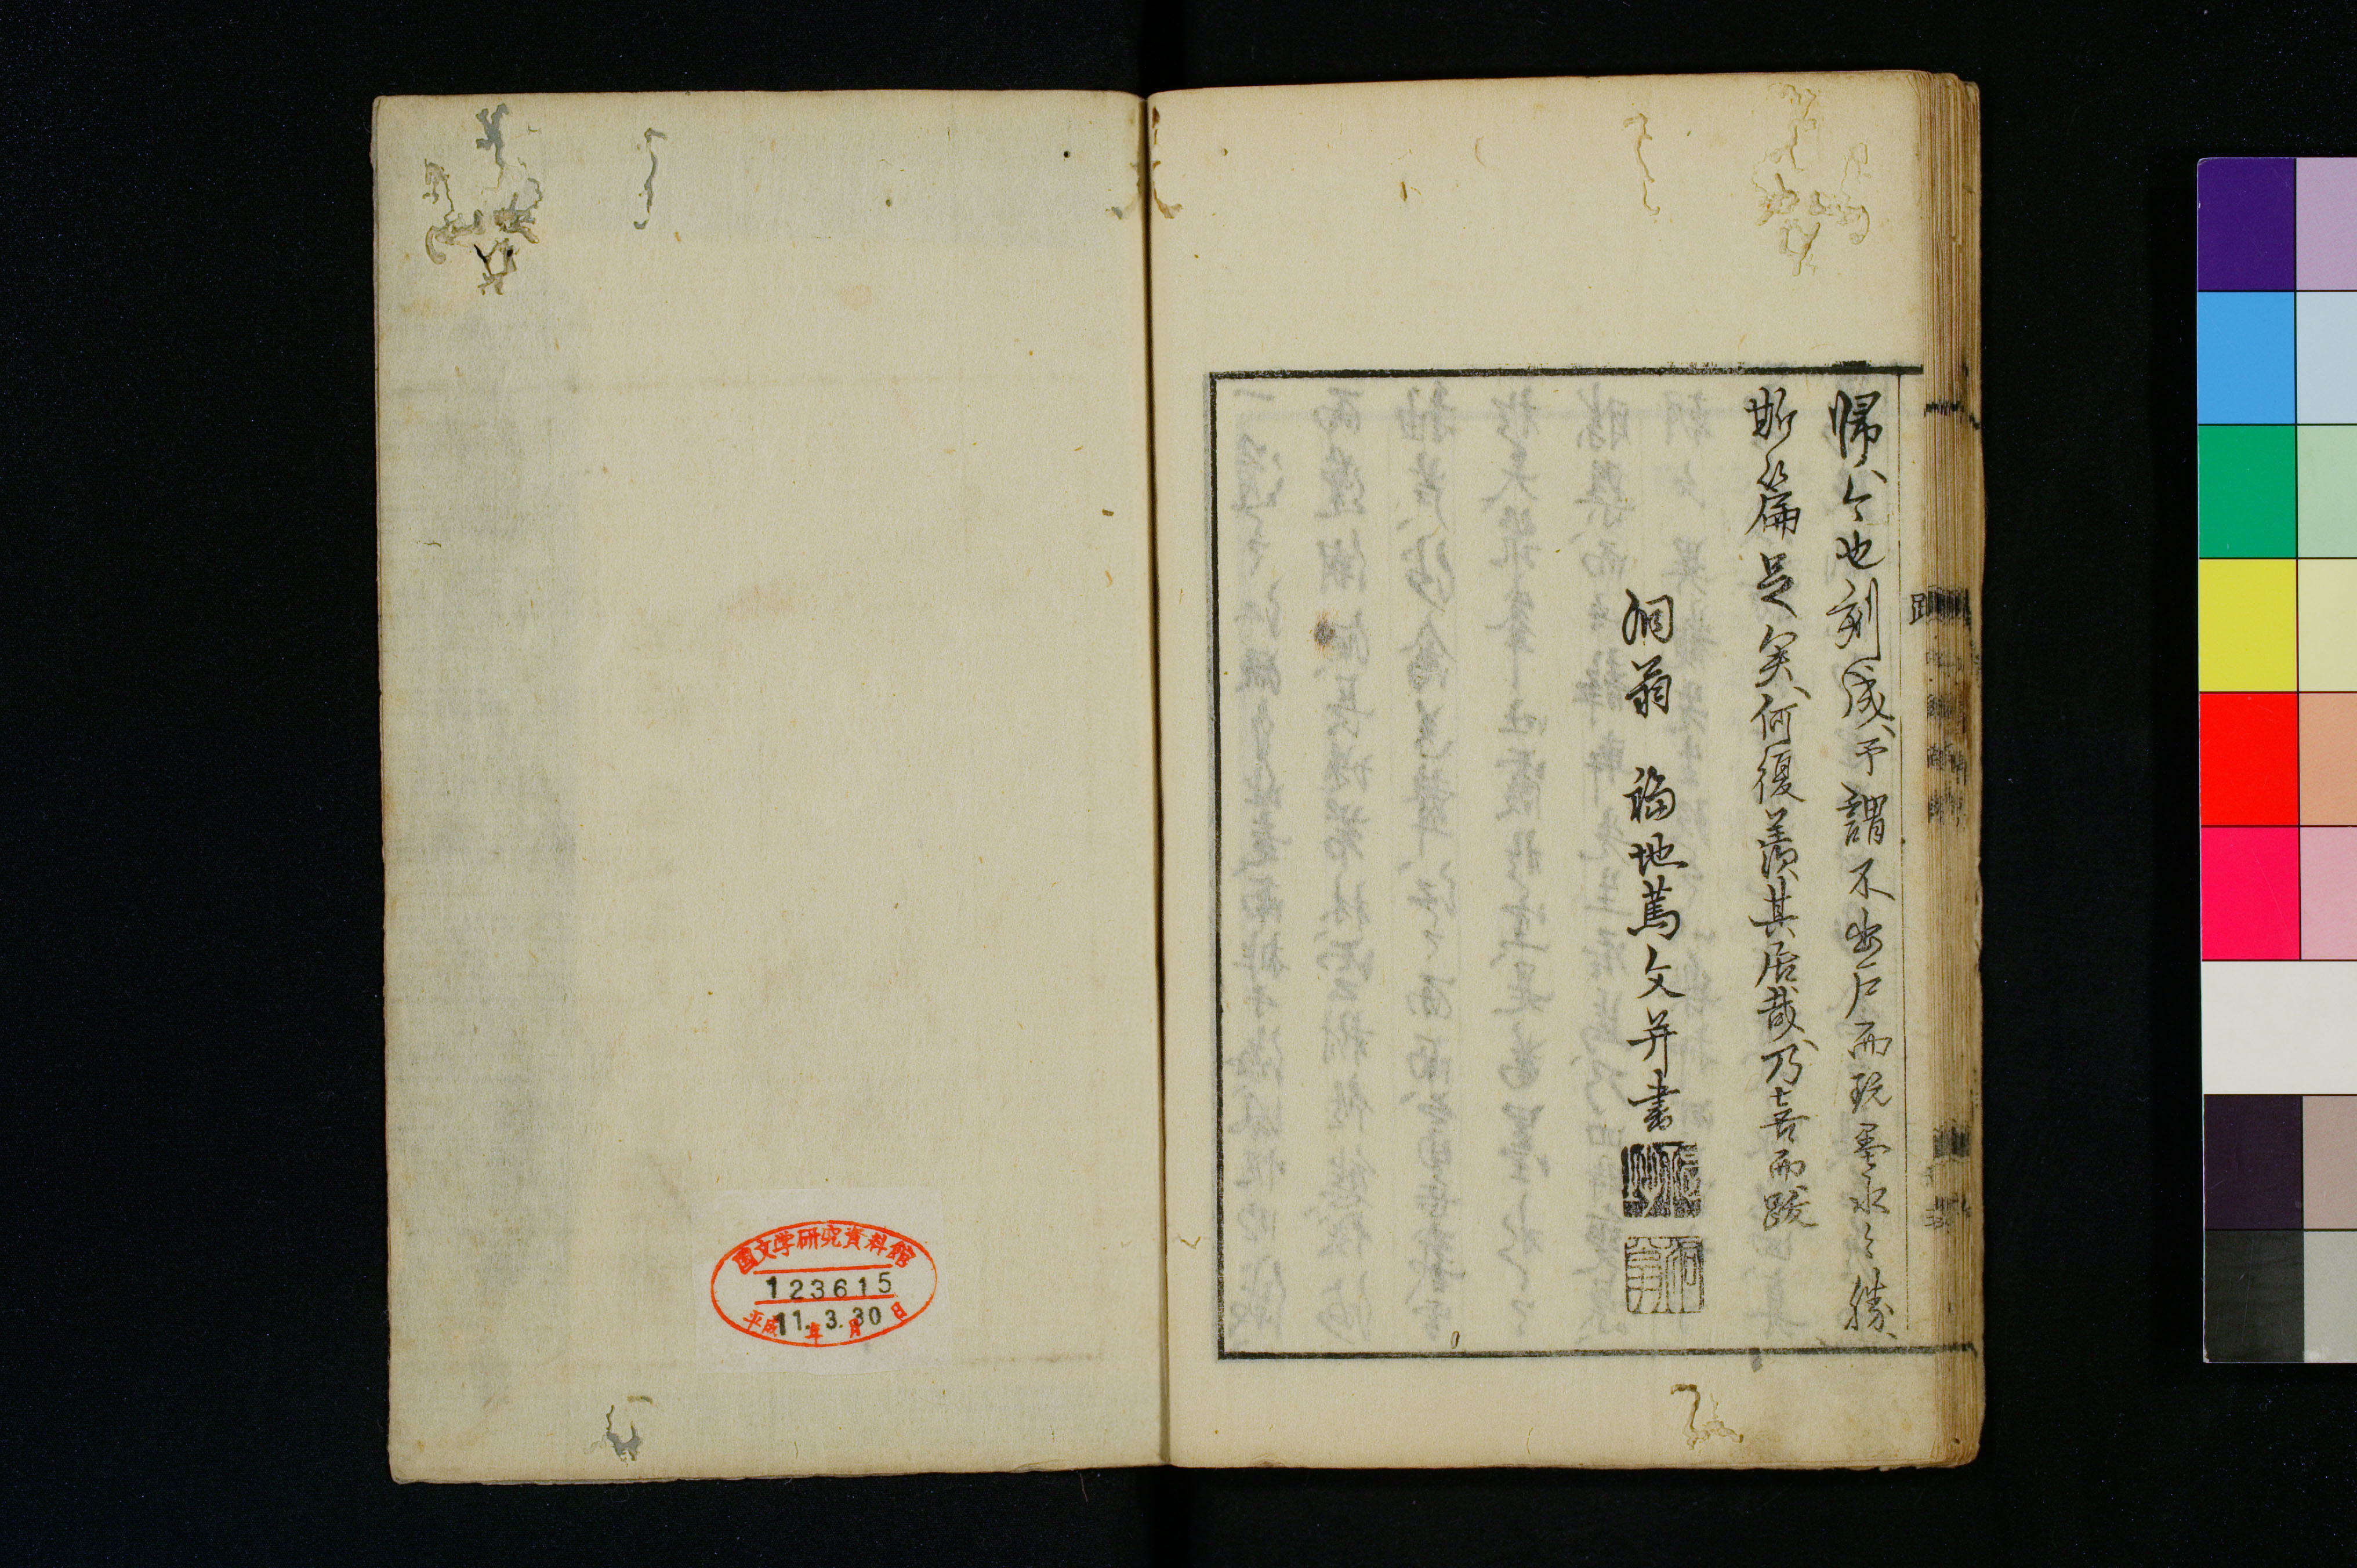 帰今也刻成予謂不出戸而玩墨水之勝
斯篇足矣何復羨其居哉乃喜而跋
洞翁　福地蔦文并書
跋
国文学研究資料館
123615
平成11年3月30日